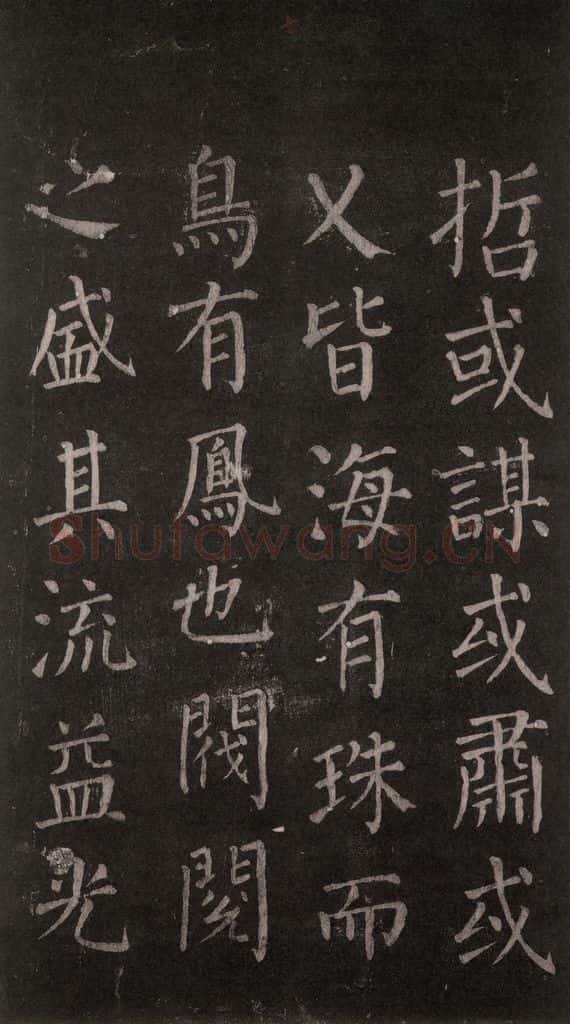 哲或謀或肅或
乂皆海有珠而
鳥有鳳也閥閱
之盛其流益光
Shufawang.CN